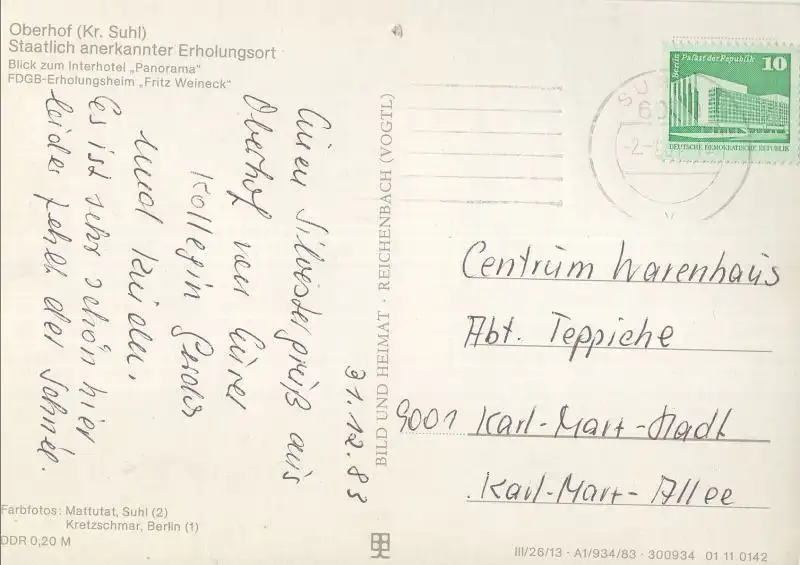 Oberhof (Kr. Suhl)
Staatlich anerkannter Erholungsort
Blick zum Interhotel „Panorama“
FDGB-Erholungsheim „Fritz Weineck“
31.12.83
Einen Silvestergruß aus
Oberhof von Eurer
Kollegin Gerda
und Kinder.
Es ist sehr schön hier
leider fehlt der Schnee.
Farbfotos: Mattutat, Suhl (2)
Kretzschmar, Berlin (1)
DDR 0,20 M
BILD UND HEIMAT · REICHENBACH (VOGTL)
Berlin Palast der Republik 10
DEUTSCHE DEMOKRATISCHE REPUBLIK
Centrum Warenhaus
Abt. Teppiche
9001 Karl-Marx-Stadt
Karl-Marx-Allee
III/26/13 · A1/934/83 · 300934 01 11 0142